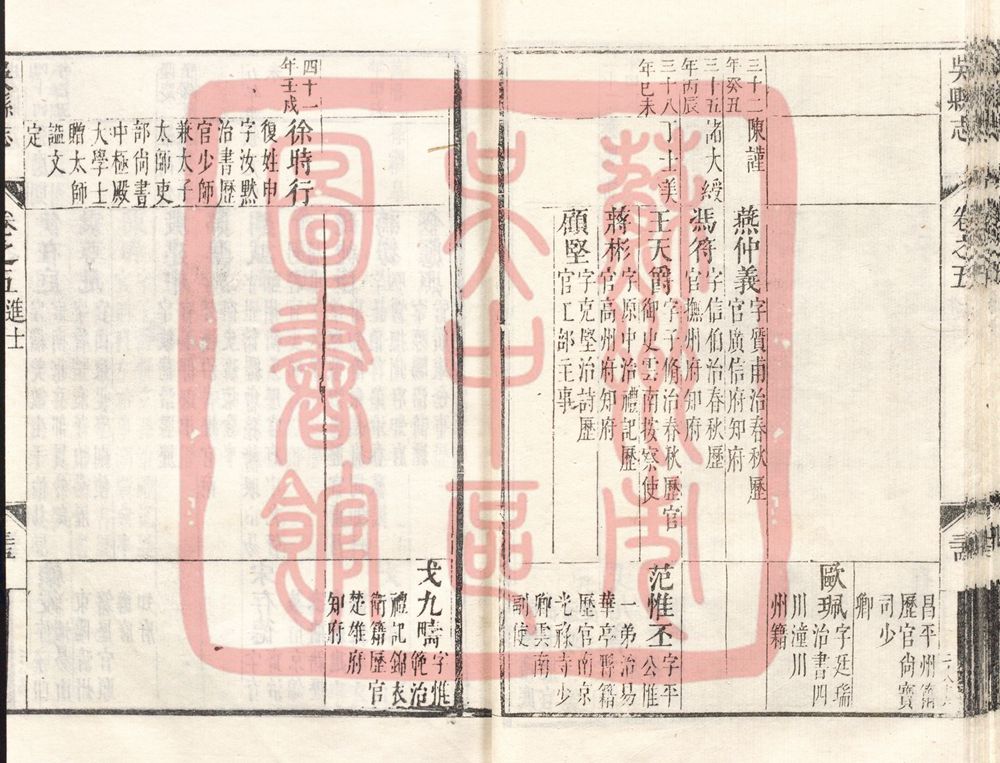 吳縣志
卷之五
昌平州籍
歷官尚寶
司少
卿
歐珮字廷瑞
治書四
川潼川
州籍
三十二
年癸丑
陳謹
燕仲義字質甫治春秋歷
官廣信府知府
三十五
年丙辰
諸大綬
馮符字信伯治春秋歷
官撫州府知府
三十八
年己未
丁士美
王天爵字子脩治春秋歷官
御史雲南按察使
范惟丕字平
公惟
一弟治易
華亭縣籍
歷官南京
光祿寺少
卿雲南
副使
蔣彬字原中治禮記歷
官高州府知府
顧堅字克堅治詩歷
官工部主事
蘇州市
吳中區
圖書館
四十一
年壬戌
徐時行
復姓申
字汝默
治書歷
官少師
兼太子
太師吏
部尚書
中極殿
大學士
贈太師
謚文
定
戈九疇字惟
範治
禮記錦衣
衛籍歷官
楚雄府
知府
吳縣志
卷之五
進士